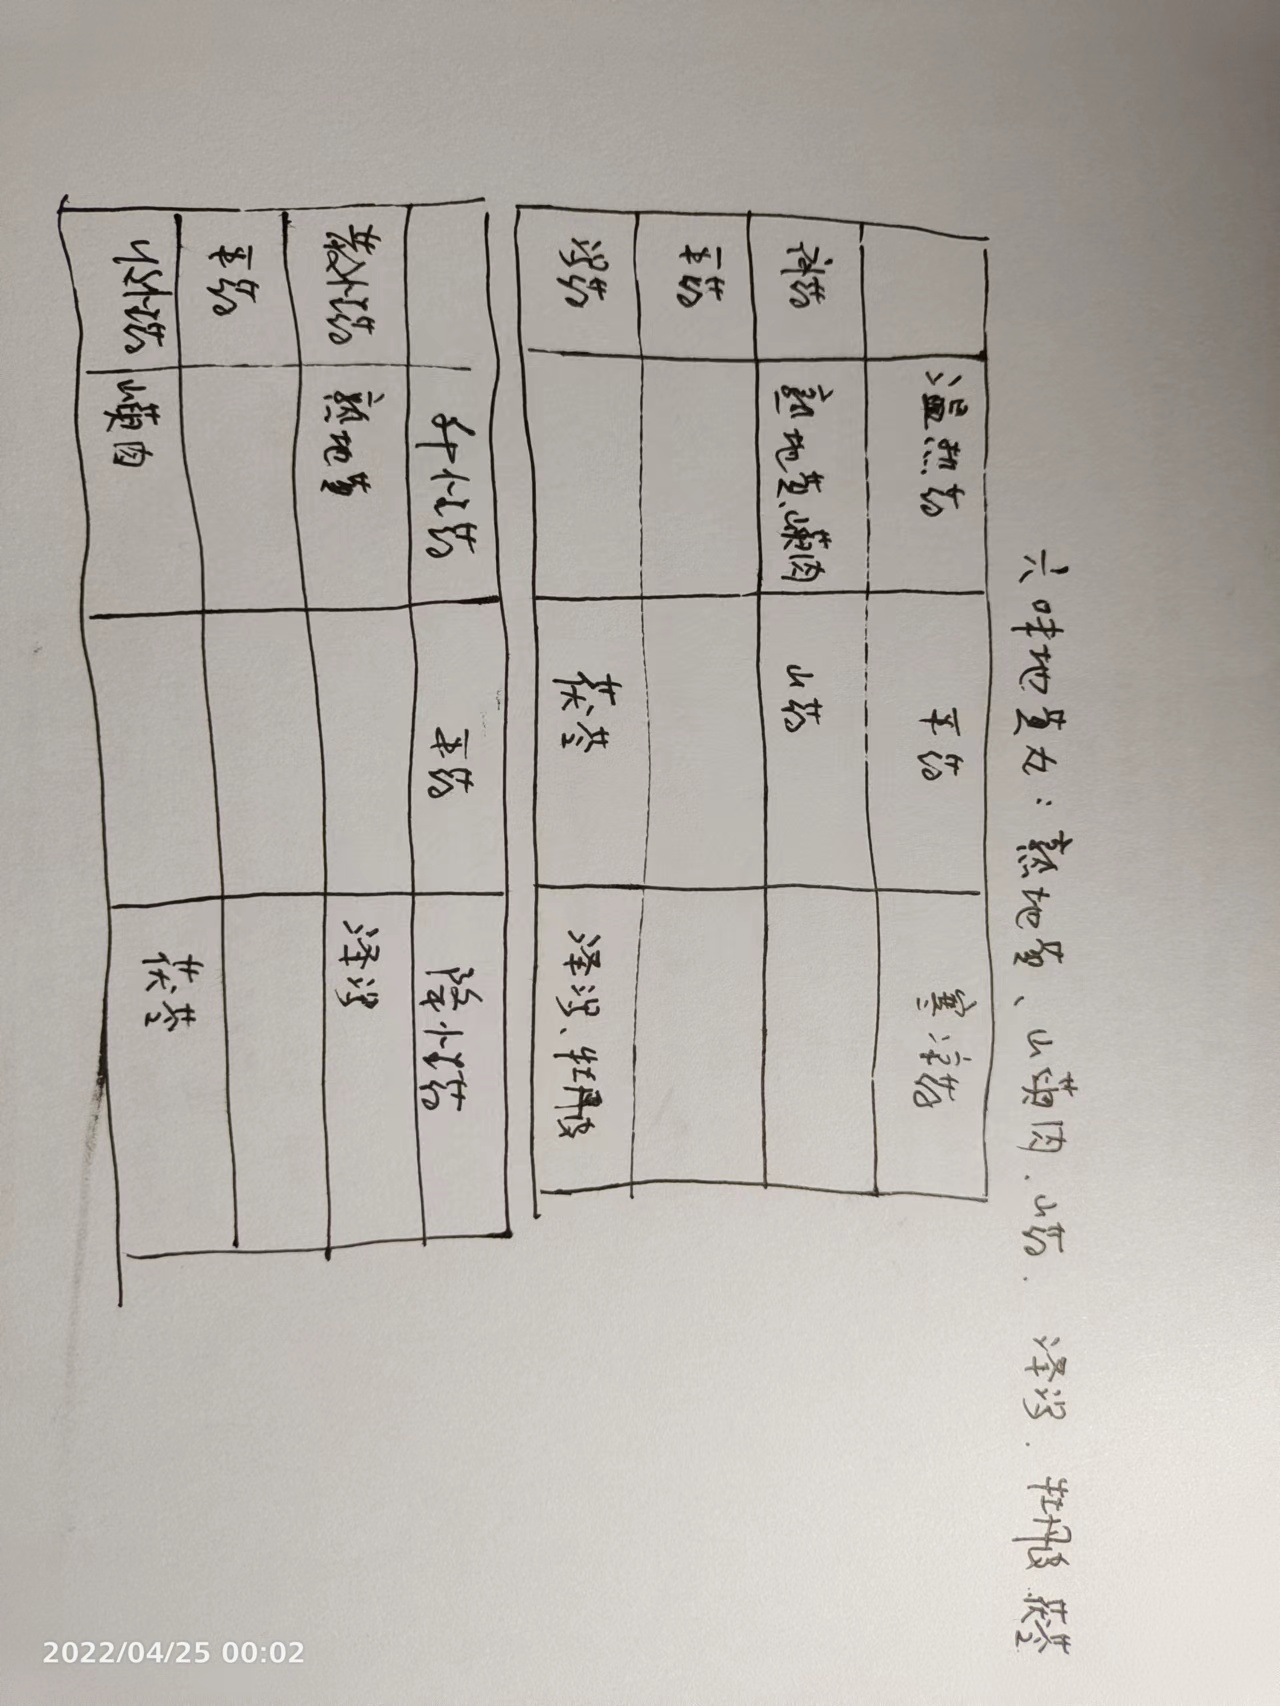 六味地黄丸：熟地黄、山萸肉.山药. 泽泻. 牡丹皮 茯苓
温热药 平药 寒凉药
补药 熟地黄、山萸肉 山药
平药
泻药 茯苓 泽泻、牡丹皮
升性药 平药 降性药
散性药 熟地黄 泽泻
平药
收性药 山萸肉 茯苓
2022/04/25 00:02